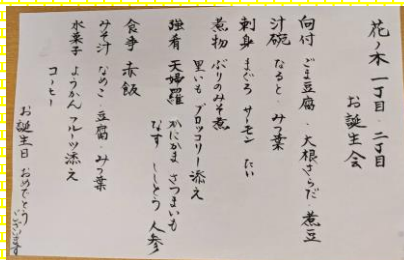 花ノ木 一丁目・二丁目
お誕生会
向付 ごま豆腐・大根さらだ・煮豆
汁碗 なると・みつ葉
刺身 まぐろ サーモン たい
煮物 ぶりのみそ煮
里いも ブロッコリー添え
強肴 天婦羅 かにかま さつまいも
なす ししとう 人参
食事 赤飯
みそ汁 なめこ・豆腐・みつ葉
水菓子 ようかん フルーツ添え
コーヒー
お誕生日 おめでとう
ございます